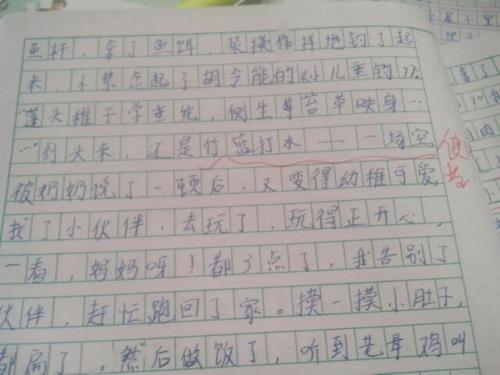 鱼杆，拿了鱼饵，装模作样地钓了起
来，不禁念起了胡令能的《小儿垂钓》
"蓬头稚子学垂纶，侧坐莓苔草映身…
…"到头来，还是竹篮打水——一场空
被奶奶说了一顿后，又变得幼稚可爱
找了小伙伴，去玩了，玩得正开心，
一看，妈妈呀！都3点了，我告别了
伙伴，赶忙跑回了家。摸一摸小肚子，
都扁了，然后做饭了，听到老母鸡叫